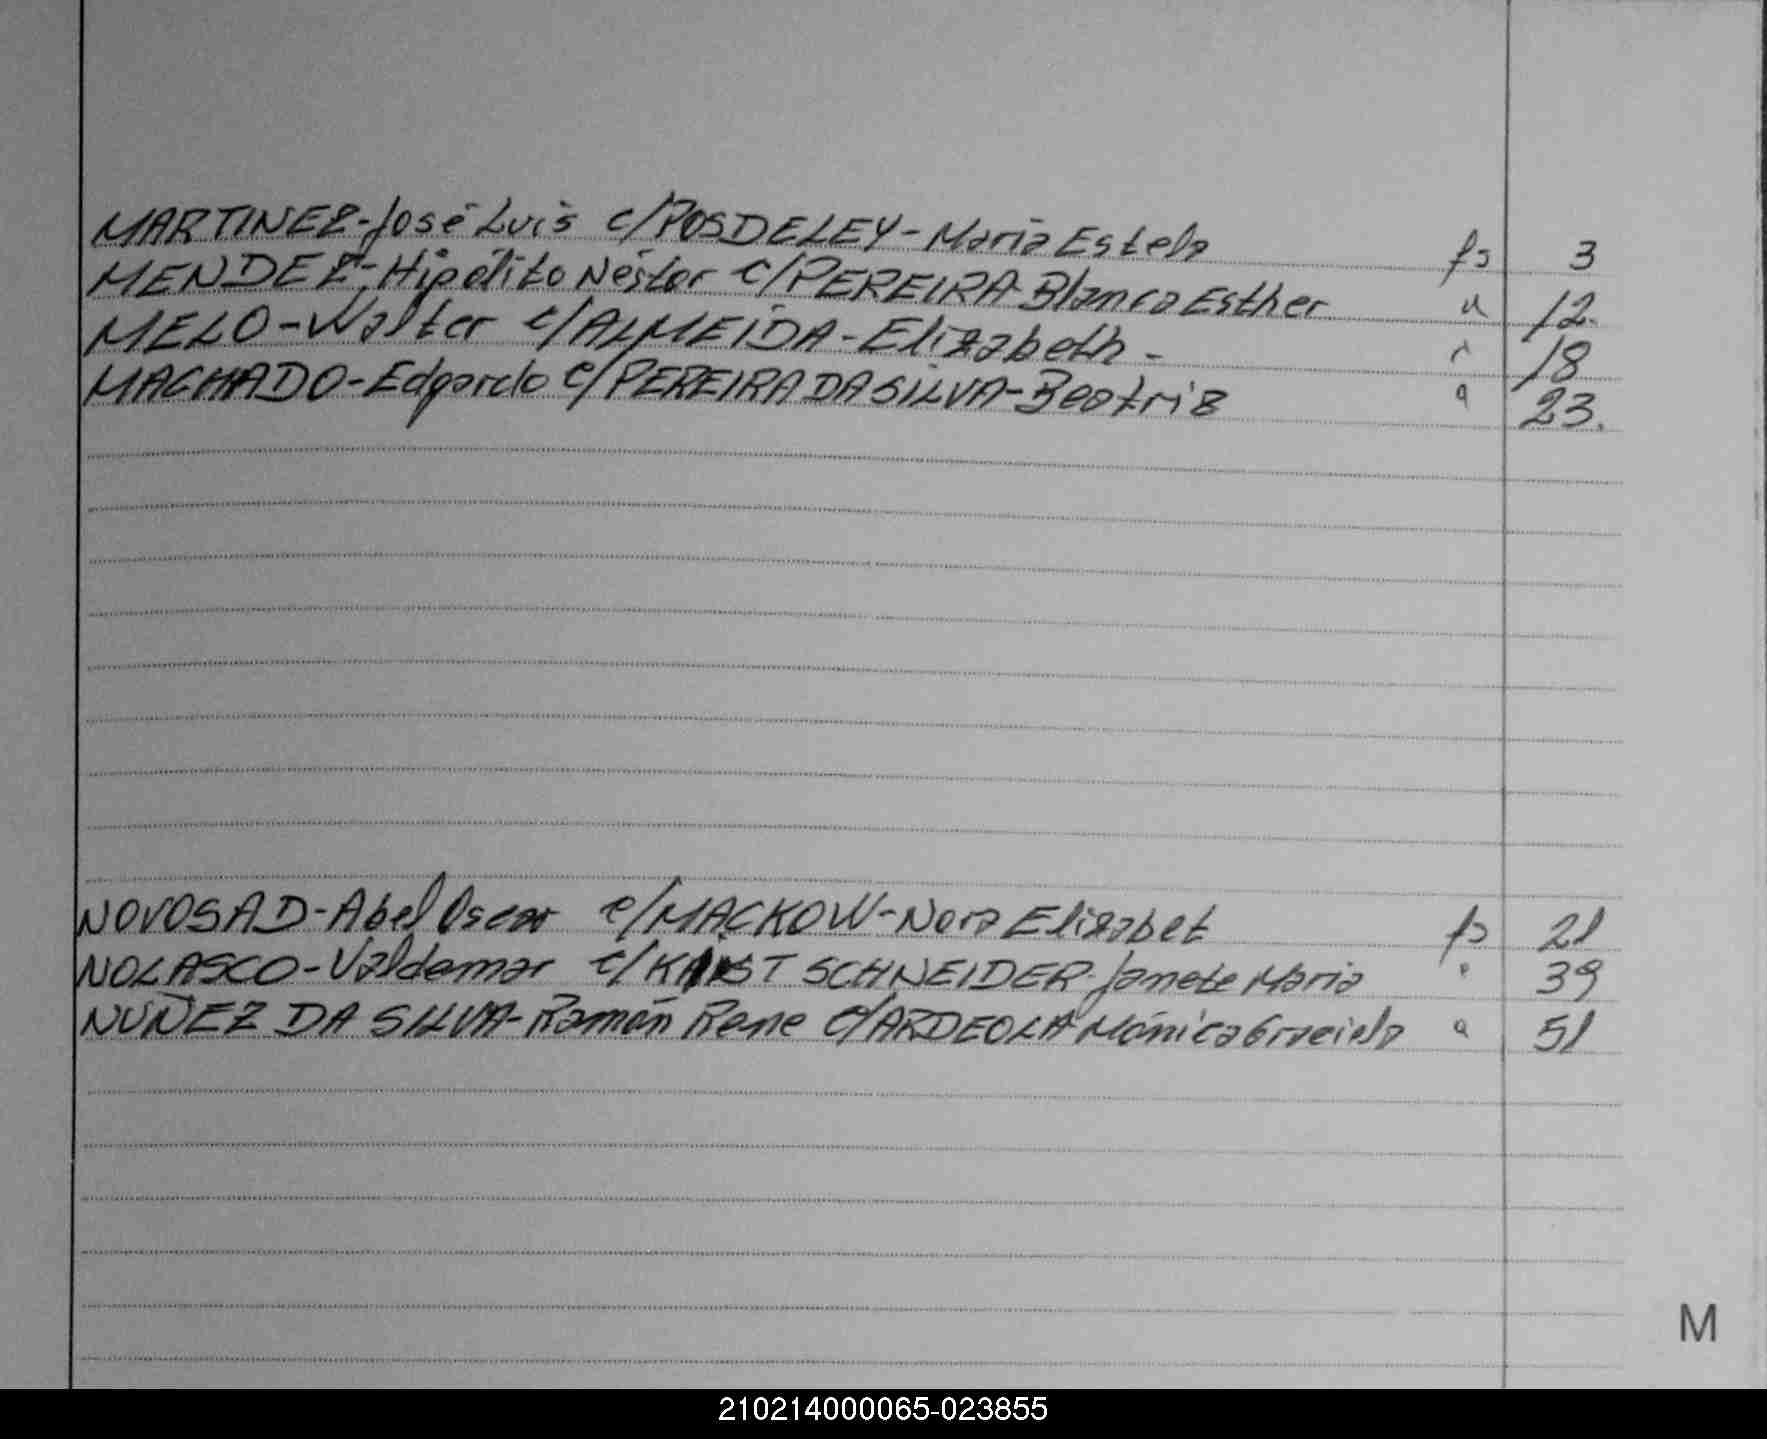 MARTINEZ-José Luis c/POSDELEY-Maria Estela fs 3
MENDEZ-Hipólito Néstor c/PEREIRA-Blanca Esther " 12.
MELO-Walter c/ALMEIDA-Elizabeth- " 18
MACHADO-Edgardo c/PEREIRA DA SILVA-Beatriz " 23.
NOVOSAD-Abel Oscar c/MACKOW-Nora Elizabet fs 21
NOLASCO-Valdemar c/ SCHNEIDER-Janete Maria " 39
NUÑEZ DA SILVA-Ramón Rene c/ARDEOLA Mónica Graciela " 51
M
210214000065-023855